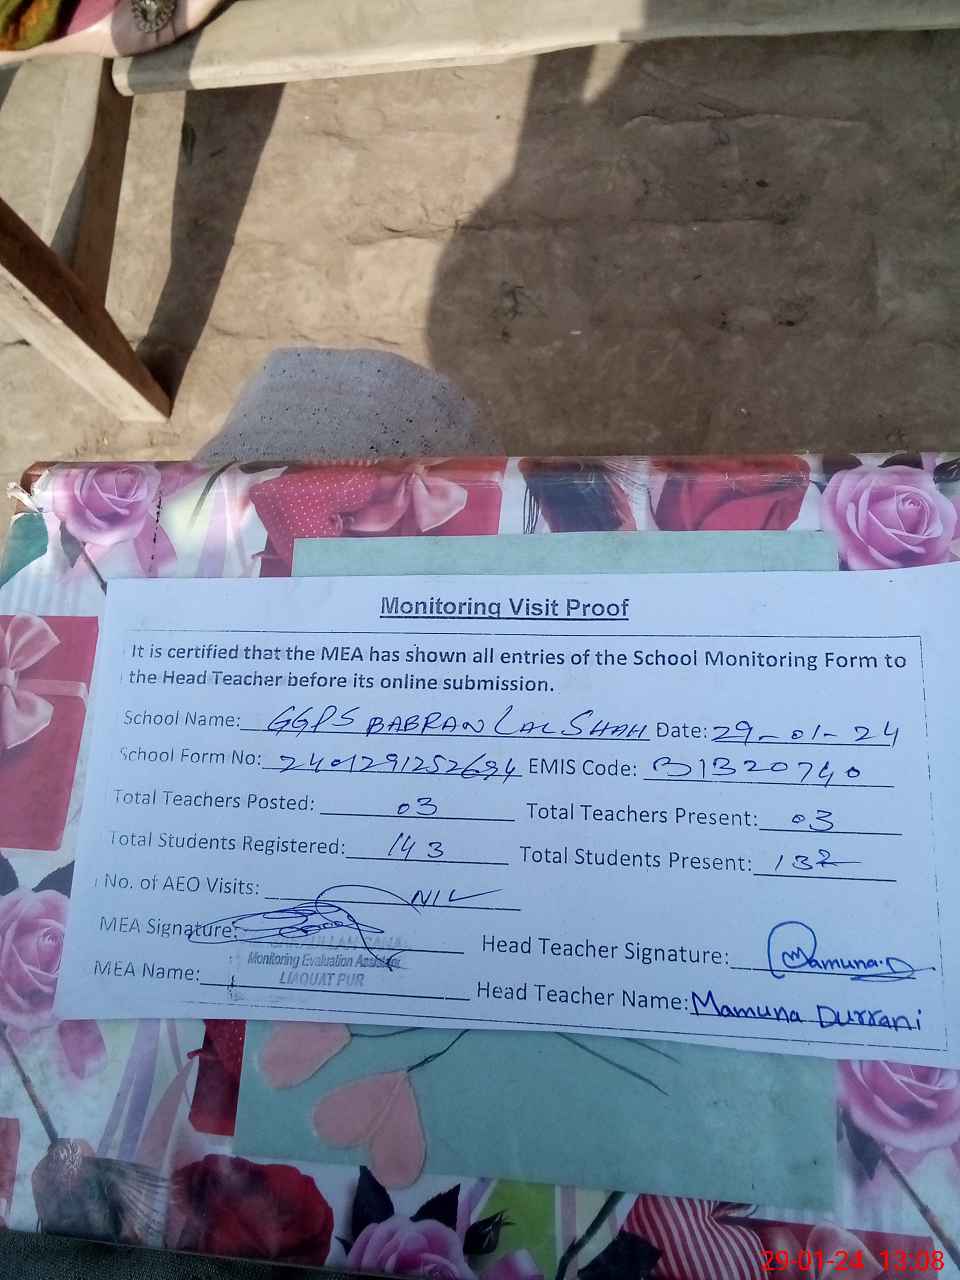 Monitoring Visit Proof
It is certified that the MEA has shown all entries of the School Monitoring Form to
the Head Teacher before its online submission.
School Name: GGPS BABRAN LAL SHAH Date: 29-01-24
School Form No: 2401291252694 EMIS Code: 31320740
Total Teachers Posted: 03 Total Teachers Present: 03
Total Students Registered: 143 Total Students Present: 132
No. of AEO Visits: NIL
MEA Signature: Head Teacher Signature: Mamuna.D
Monitoring Evaluation Assistant
LIAQUAT PUR
MEA Name: Head Teacher Name: Mamuna Durrani
29-01-24 13:08